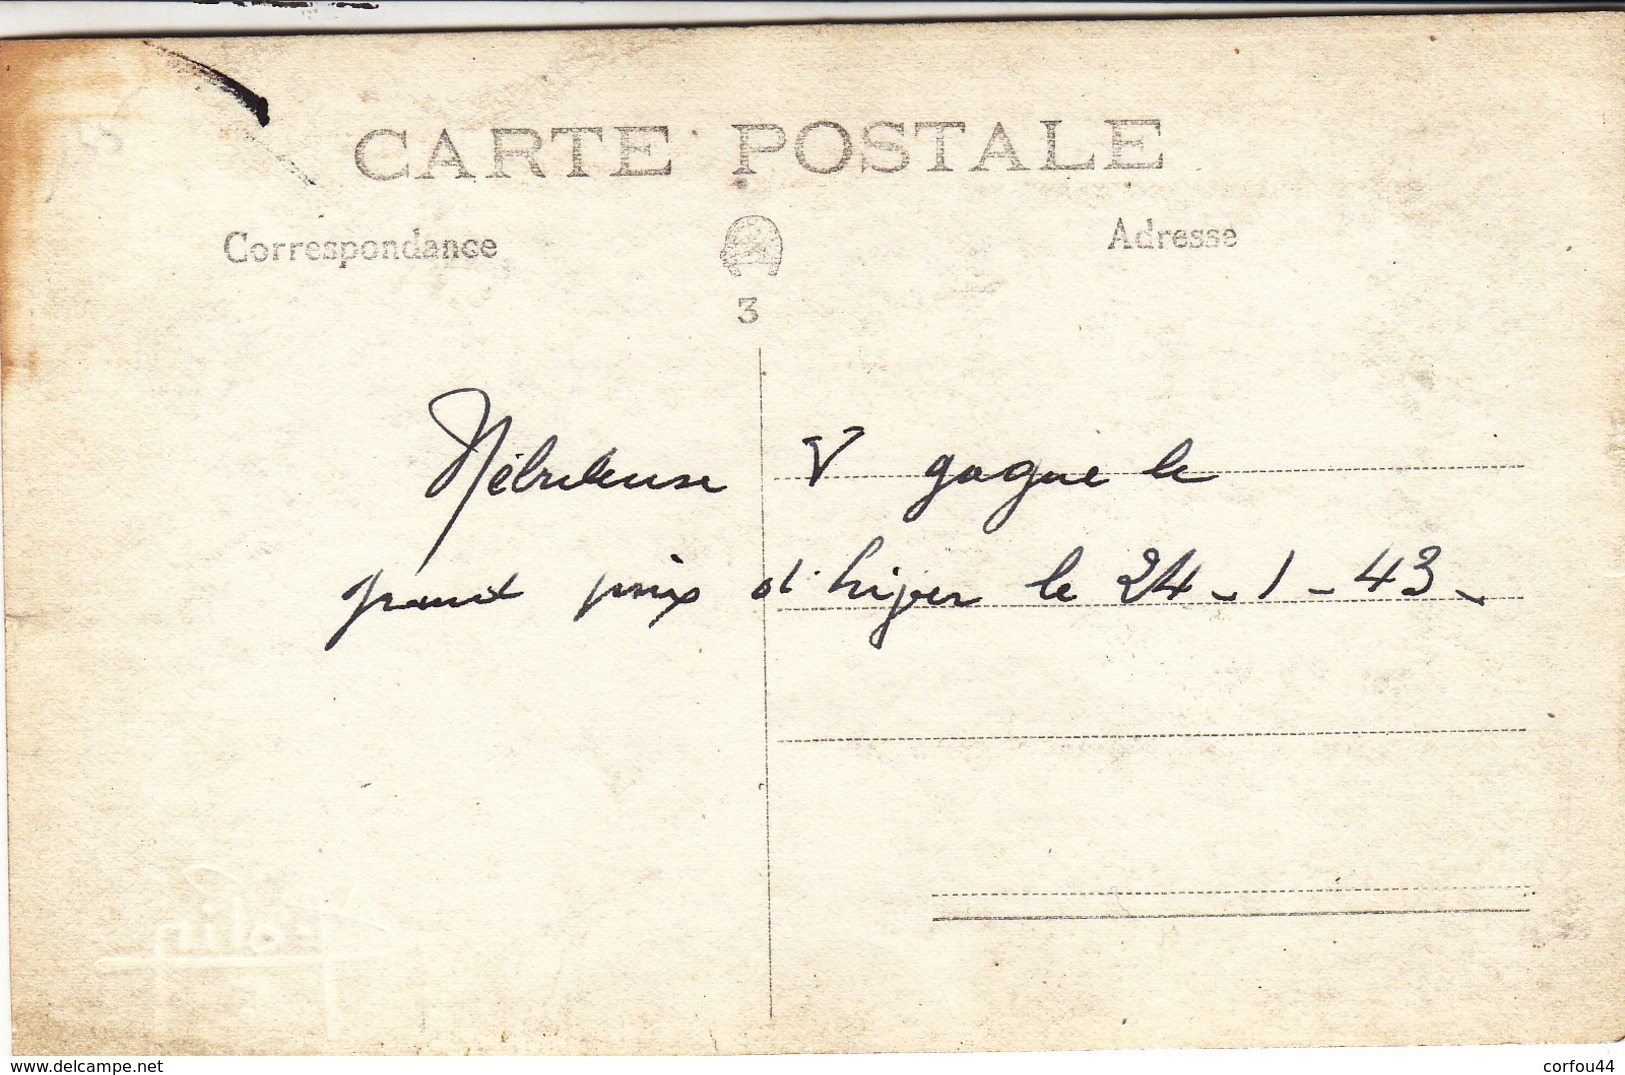 CARTE POSTALE
Correspondance
Adresse
3
Nébuleuse V gagne le
grand prix d'hiver le 24-1-43-
www.delcampe.net
corfou44